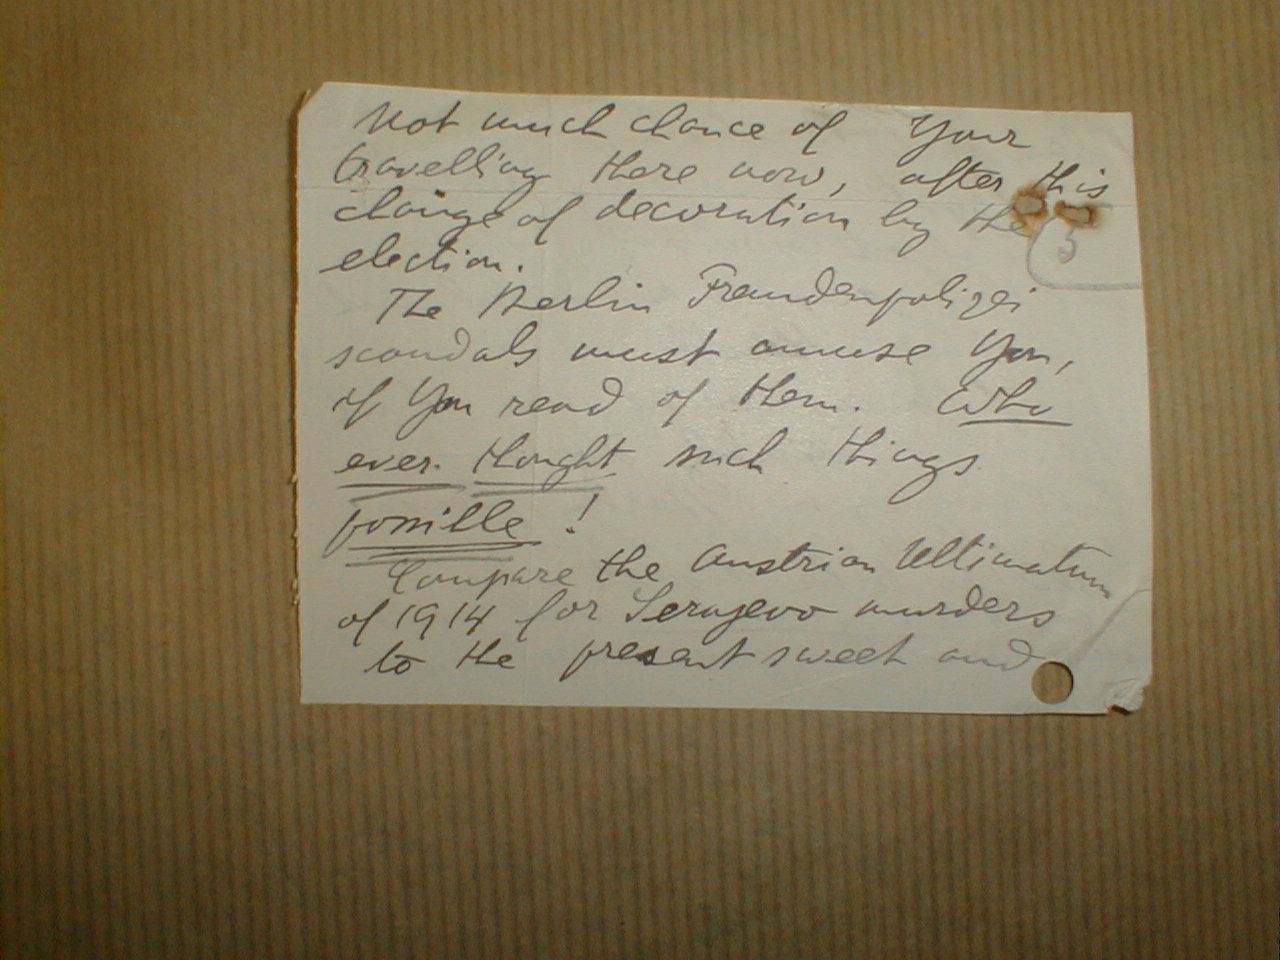 Not much chance of Your
travelling there now, after this
change of decoration by the
election.
5
The Berlin Fremdenpolizei
scandals must amuse You,
if You read of them. Who
ever thought such things
possible !
Compare the Austrian Ultimatum
of 1914 for Serajevo murders
to the present sweet and